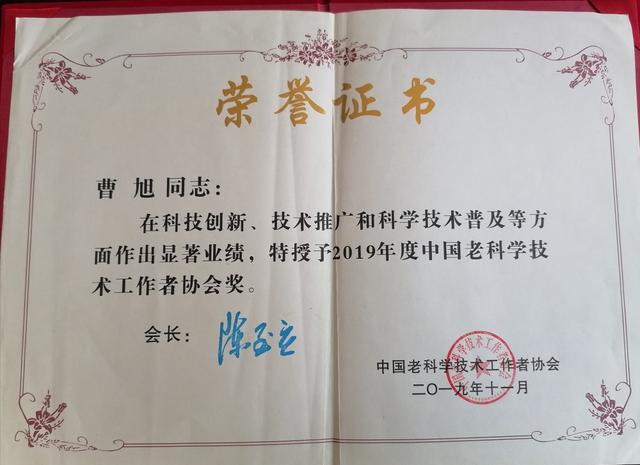 荣誉证书
曹旭同志：
在科技创新、技术推广和科学技术普及等方
面作出显著业绩，特授予2019年度中国老科学技
术工作者协会奖。
会长：陈至立
中国老科学技术工作者协会
二〇一九年十一月